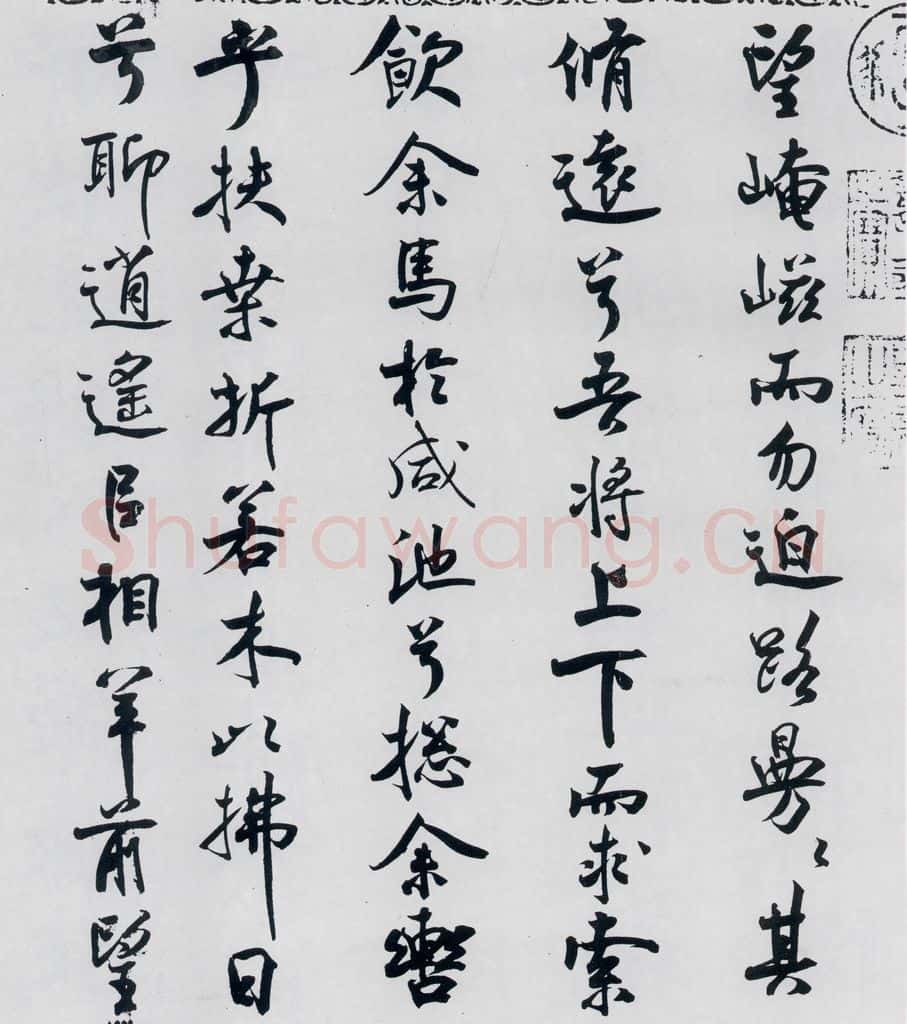 望崦嵫而勿迫路曼〻其
脩遠兮吾将上下而求索
飲余馬於咸池兮揔余轡
乎扶桒折若木以拂日
兮聊逍遙㠯相羊前望
Shufawang.CN